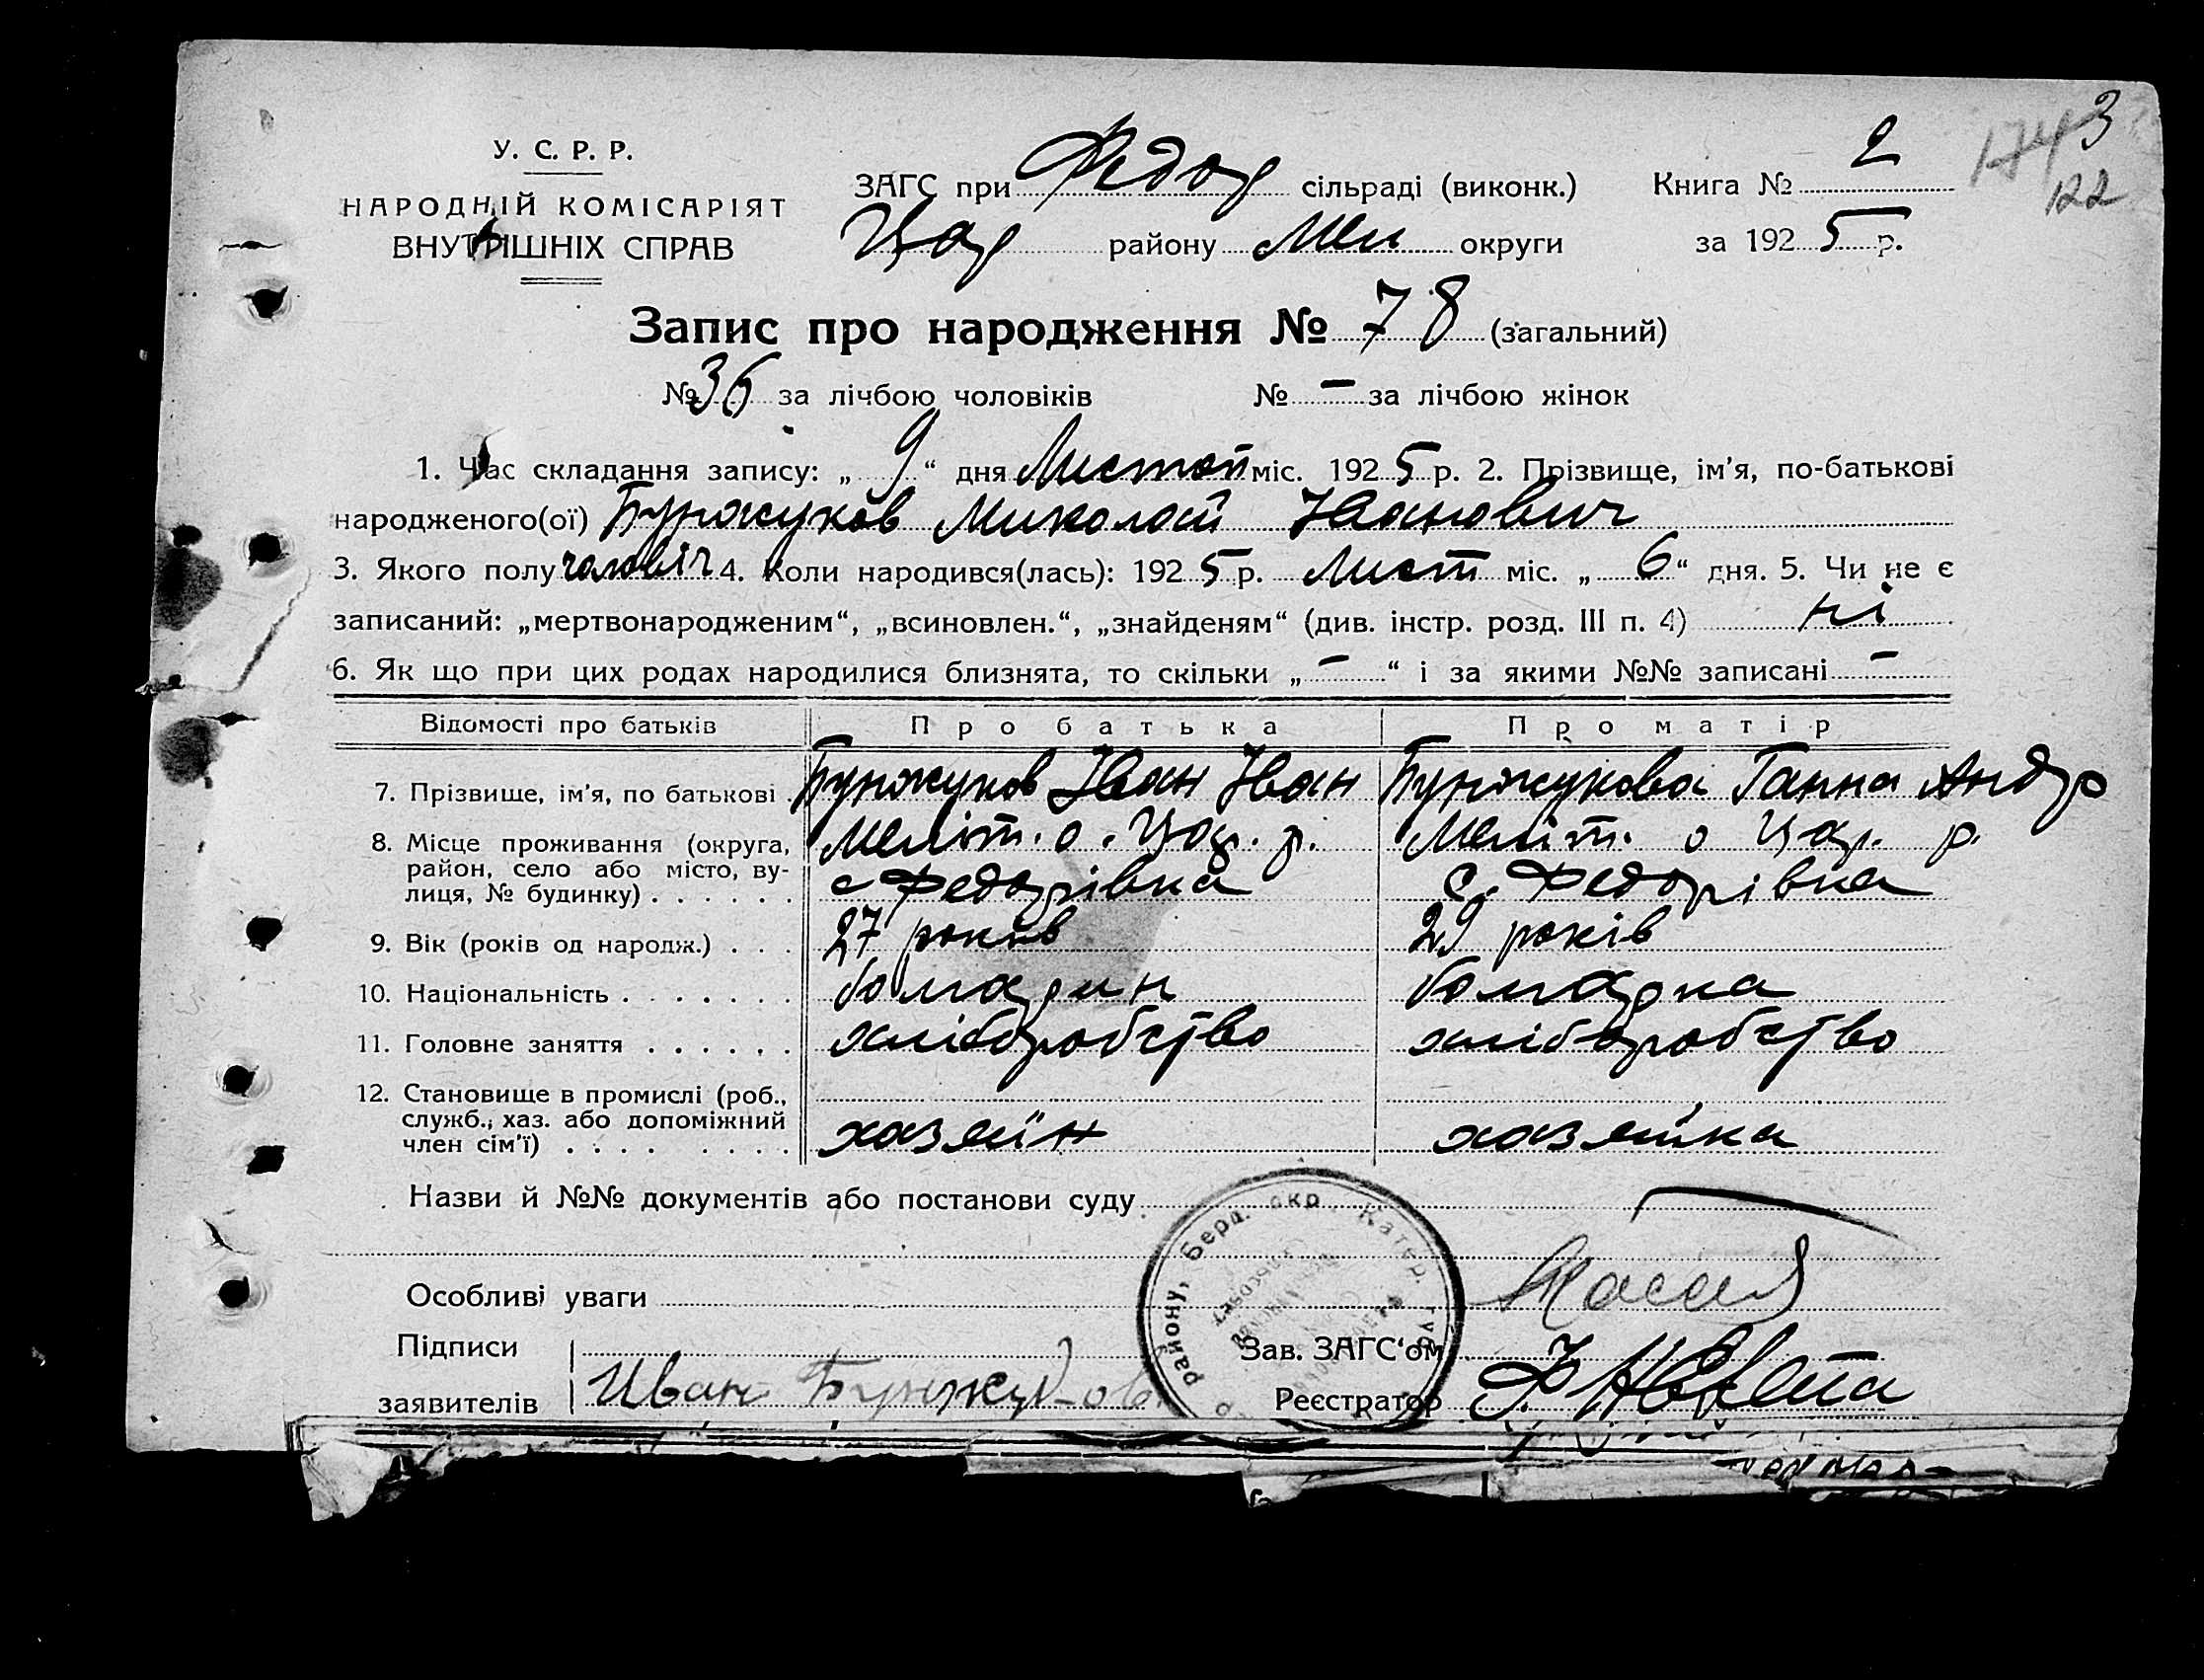 3
122
У. С. Р. Р.
НАРОДНІЙ КОМІСАРІЯТ
ВНУТРІШНІХ СПРАВ
ЗАГС при Федор сільраді (виконк.) Книга № 2
Цар району Мел округи за 1925 р.
Запис про народження № 78 (загальний)
№ 36 за лічбою чоловіків № – за лічбою жінок
1. Час складання запису: „ 9 “ дня Листоп міс. 1925 р. 2. Прізвище, ім'я, по-батькові
народженого(ої) Бунжуков Миколай Іванович
3. Якого полу чоловіч 4. Коли народився(лась): 1925 р. Лист міс. „ 6 “ дня. 5. Чи не є
записаний: „мертвонародженим“, „всиновлен.“, „знайденям“ (див. інстр. розд. III п. 4) ні
6. Як що при цих родах народилися близнята, то скільки „ – “ і за якими №№ записані –
Відомості про батьків Про батька Про матір
7. Прізвище, ім'я, по батькові . Бунжуков Іван Іван Бунжукова Ганна Андр
8. Місце проживання (округа, Меліт. о. Цар. р. Меліт. о Цар. р.
район, село або місто, ву-
лиця, № будинку) . . . . . . с Федорівка с. Федорівка
9. Вік (років од народж.) . . . 27 років 29 років
10. Національність . . . . . . . болгарин болгарка
11. Головне заняття . . . . . . хліборобство хліборобство
12. Становище в промислі (роб.,
служб., хаз. або допоміжний
член сім'ї) . . . . . . . . хазяїн хазяйка
Назви й №№ документів або постанови суду
Особливі уваги
Підписи Зав. ЗАГС'ом
заявителів Иван Бунжуков Реєстратор
району, Берд. окр. Катер. губ.